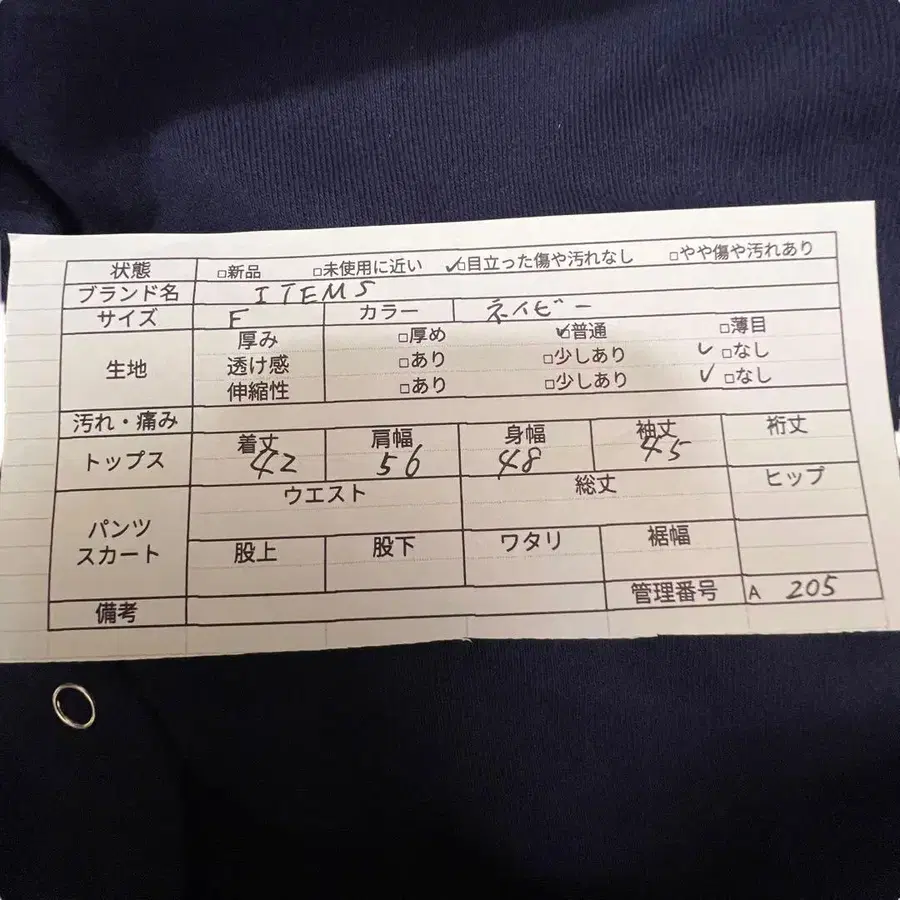 状態 □新品 □未使用に近い ✓□目立った傷や汚れなし □やや傷や汚れあり
ブランド名 ITEMS
サイズ F カラー ネイビー
生地 厚み □厚め ✓□普通 □薄目
透け感 □あり □少しあり ✓□なし
伸縮性 □あり □少しあり ✓□なし
汚れ・痛み
トップス 着丈 肩幅 身幅 袖丈 裄丈
42 56 48 45
パンツ スカート ウエスト 総丈 ヒップ
股上 股下 ワタリ 裾幅
備考 管理番号 A 205